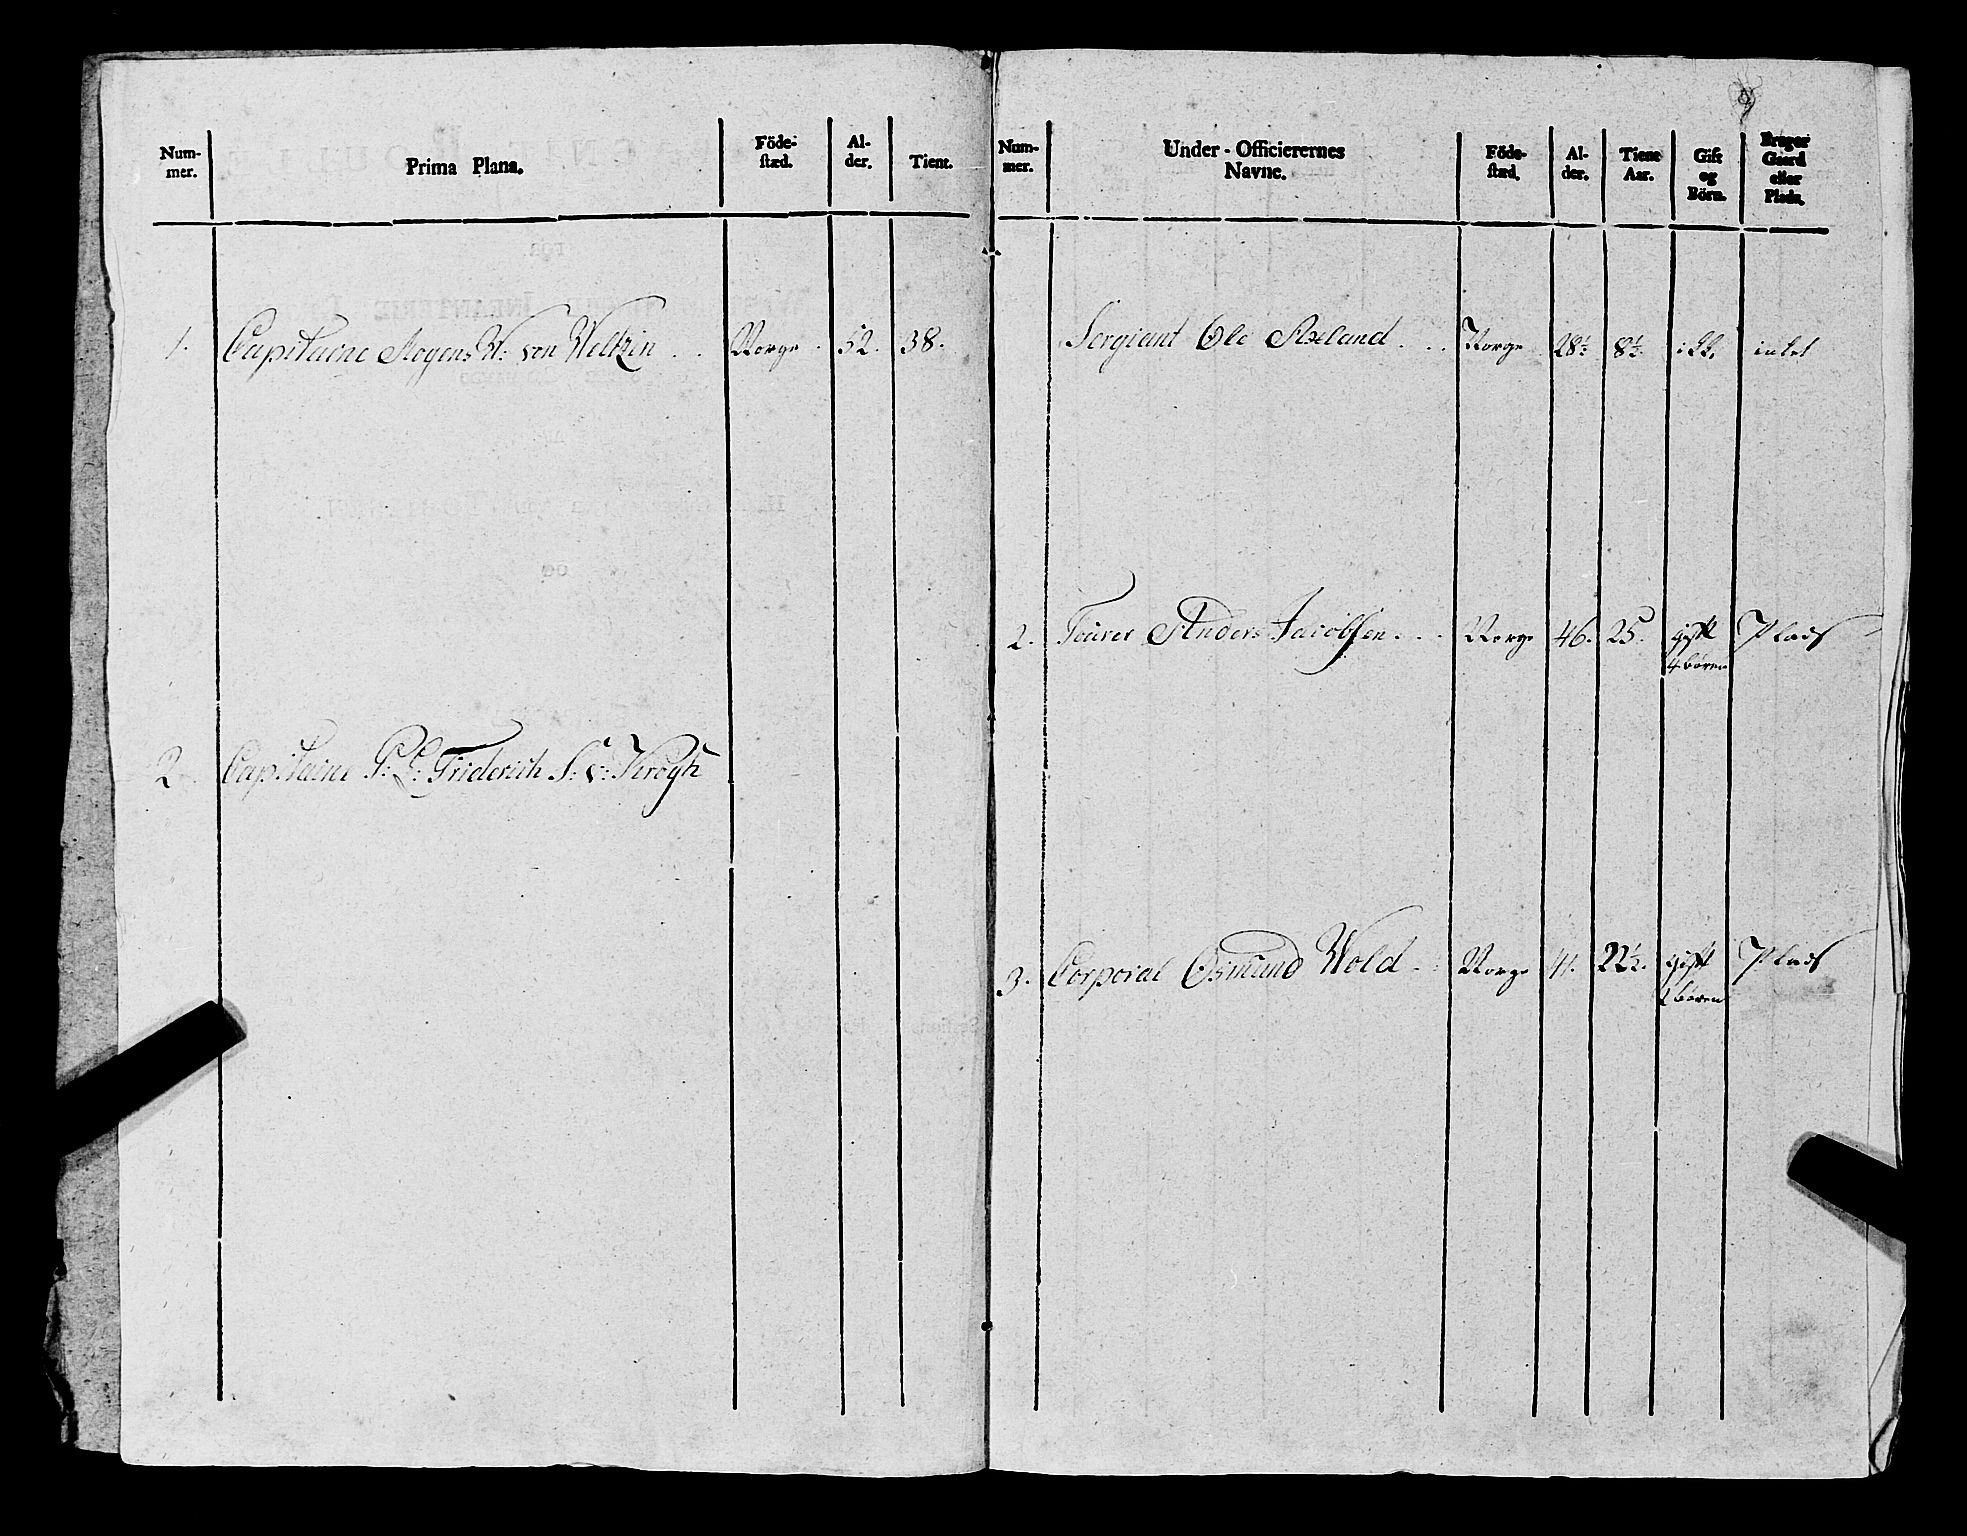 Num-
mer.
Prima Plana.
Föde-
stæd.
Al-
der.
Tient.
1. Capitaine Mogens W: von Weltzin . . Norge . 52. 38.
2. Capitaine P: L: Friderich S: v: Krogh
Num-
mer.
Under-Officierernes
Navne.
Föde-
stæd.
Al-
der.
Tient
Aar.
Gift
og
Börn.
Bruger
Gaard
eller
Plads.
Sergiant Ole Axeland . . . Norge 28½ 8½. ikk. intet
2. Fourer Anders Jacobsen . . . Norge 46. 25. gift Plads
4 børen
3. Corporal Osmund Wold . . Norge 41. 22½. gift Plads
2 børen